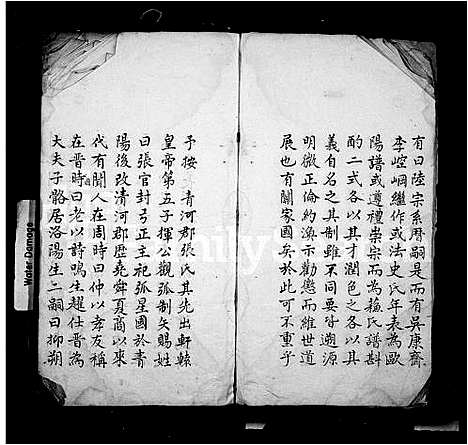 有曰陸宗系曆嗣是而有吳康齋
李崆峒繼作或法史氏年表為歐
陽譜或遵禮崇宗而為蘓氏譜斟
酌二式各以其才潤色之各以其
義自名之其制雖不同要皆遡源
明微正倫約渙示勸懲而維世道
展也有關家國矣於此可不重乎
予按 清河郡張氏其先出軒轅
皇帝第五子揮公觀弧制矢賜姓
曰張官封弓正主祀弧星國於青
陽後改清河郡歷堯舜夏商以來
代有聞人在周時曰仲以孝友稱
在晋時曰老以詩鳴生趯仕晋為
大夫子骼居洛陽生二嗣曰抑朔
Water Damage